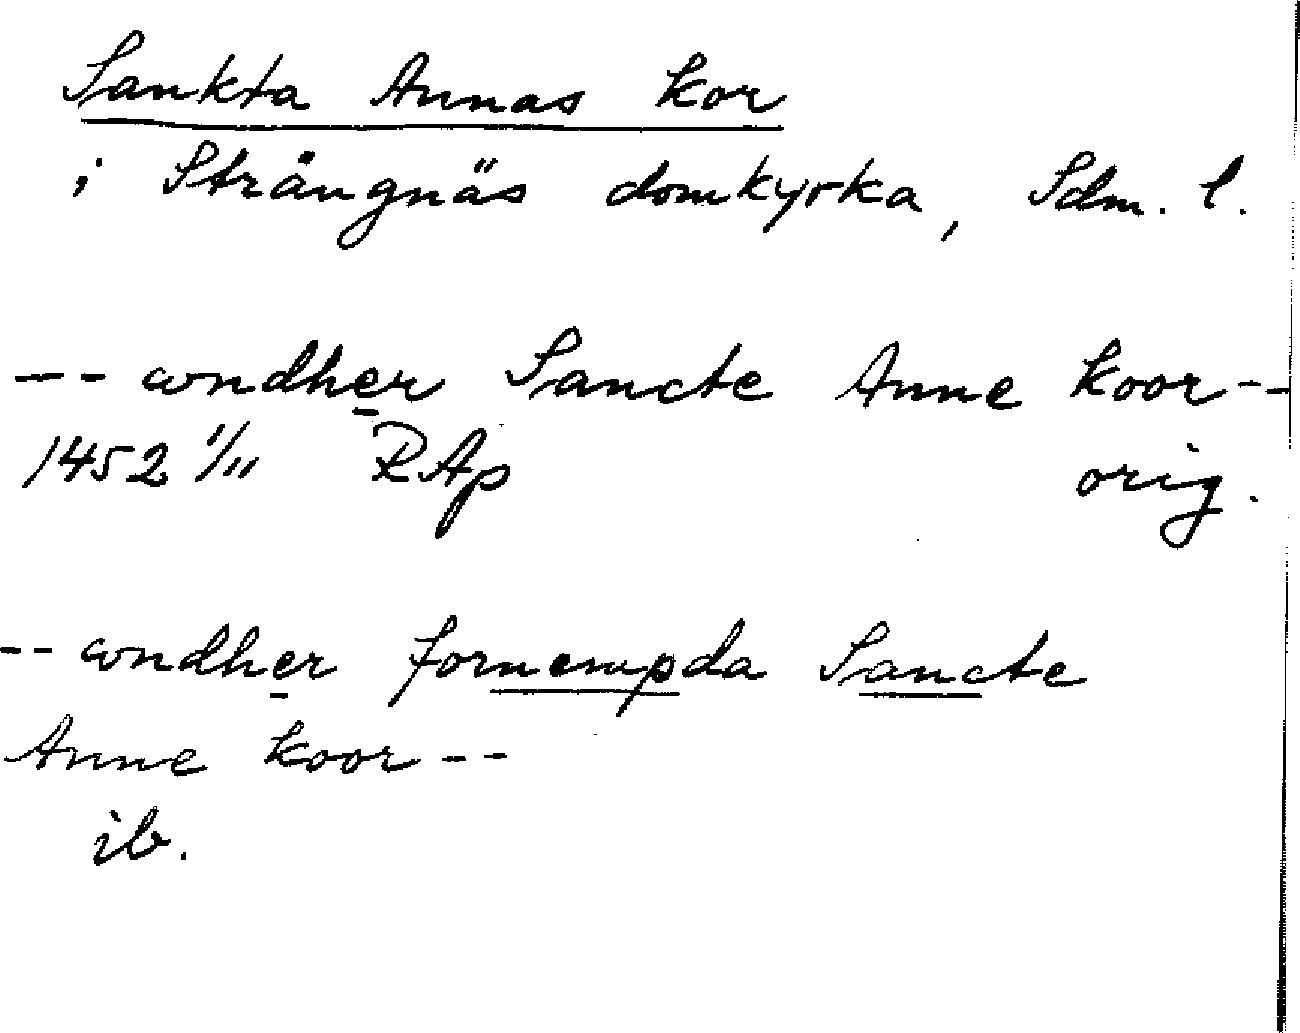 Sankta Annas kor
i Strängnäs domkyrka, Sdm. l.
-- wndher Sancte Anne koor --
1452 1/11 RAp orig.
-- wndher fornempda Sancte
Anne koor --
ib.